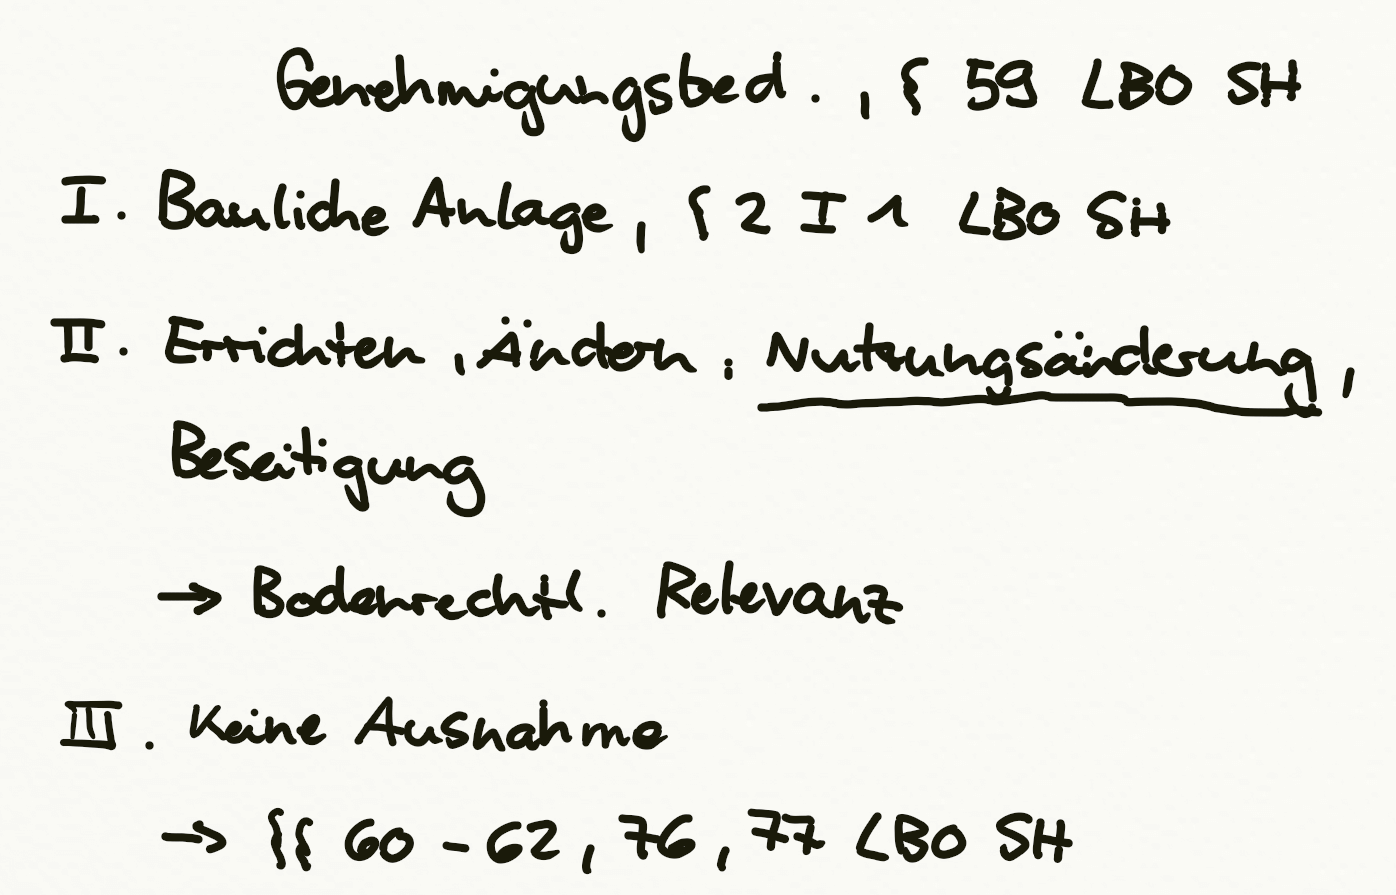 Genehmigungsbed., § 59 LBO SH
I. Bauliche Anlage, § 2 I 1 LBO SH
II. Errichten, Ändern, Nutzungsänderung,
Beseitigung
→ Bodenrechtl. Relevanz
III. Keine Ausnahme
→ §§ 60 - 62, 76, 77 LBO SH